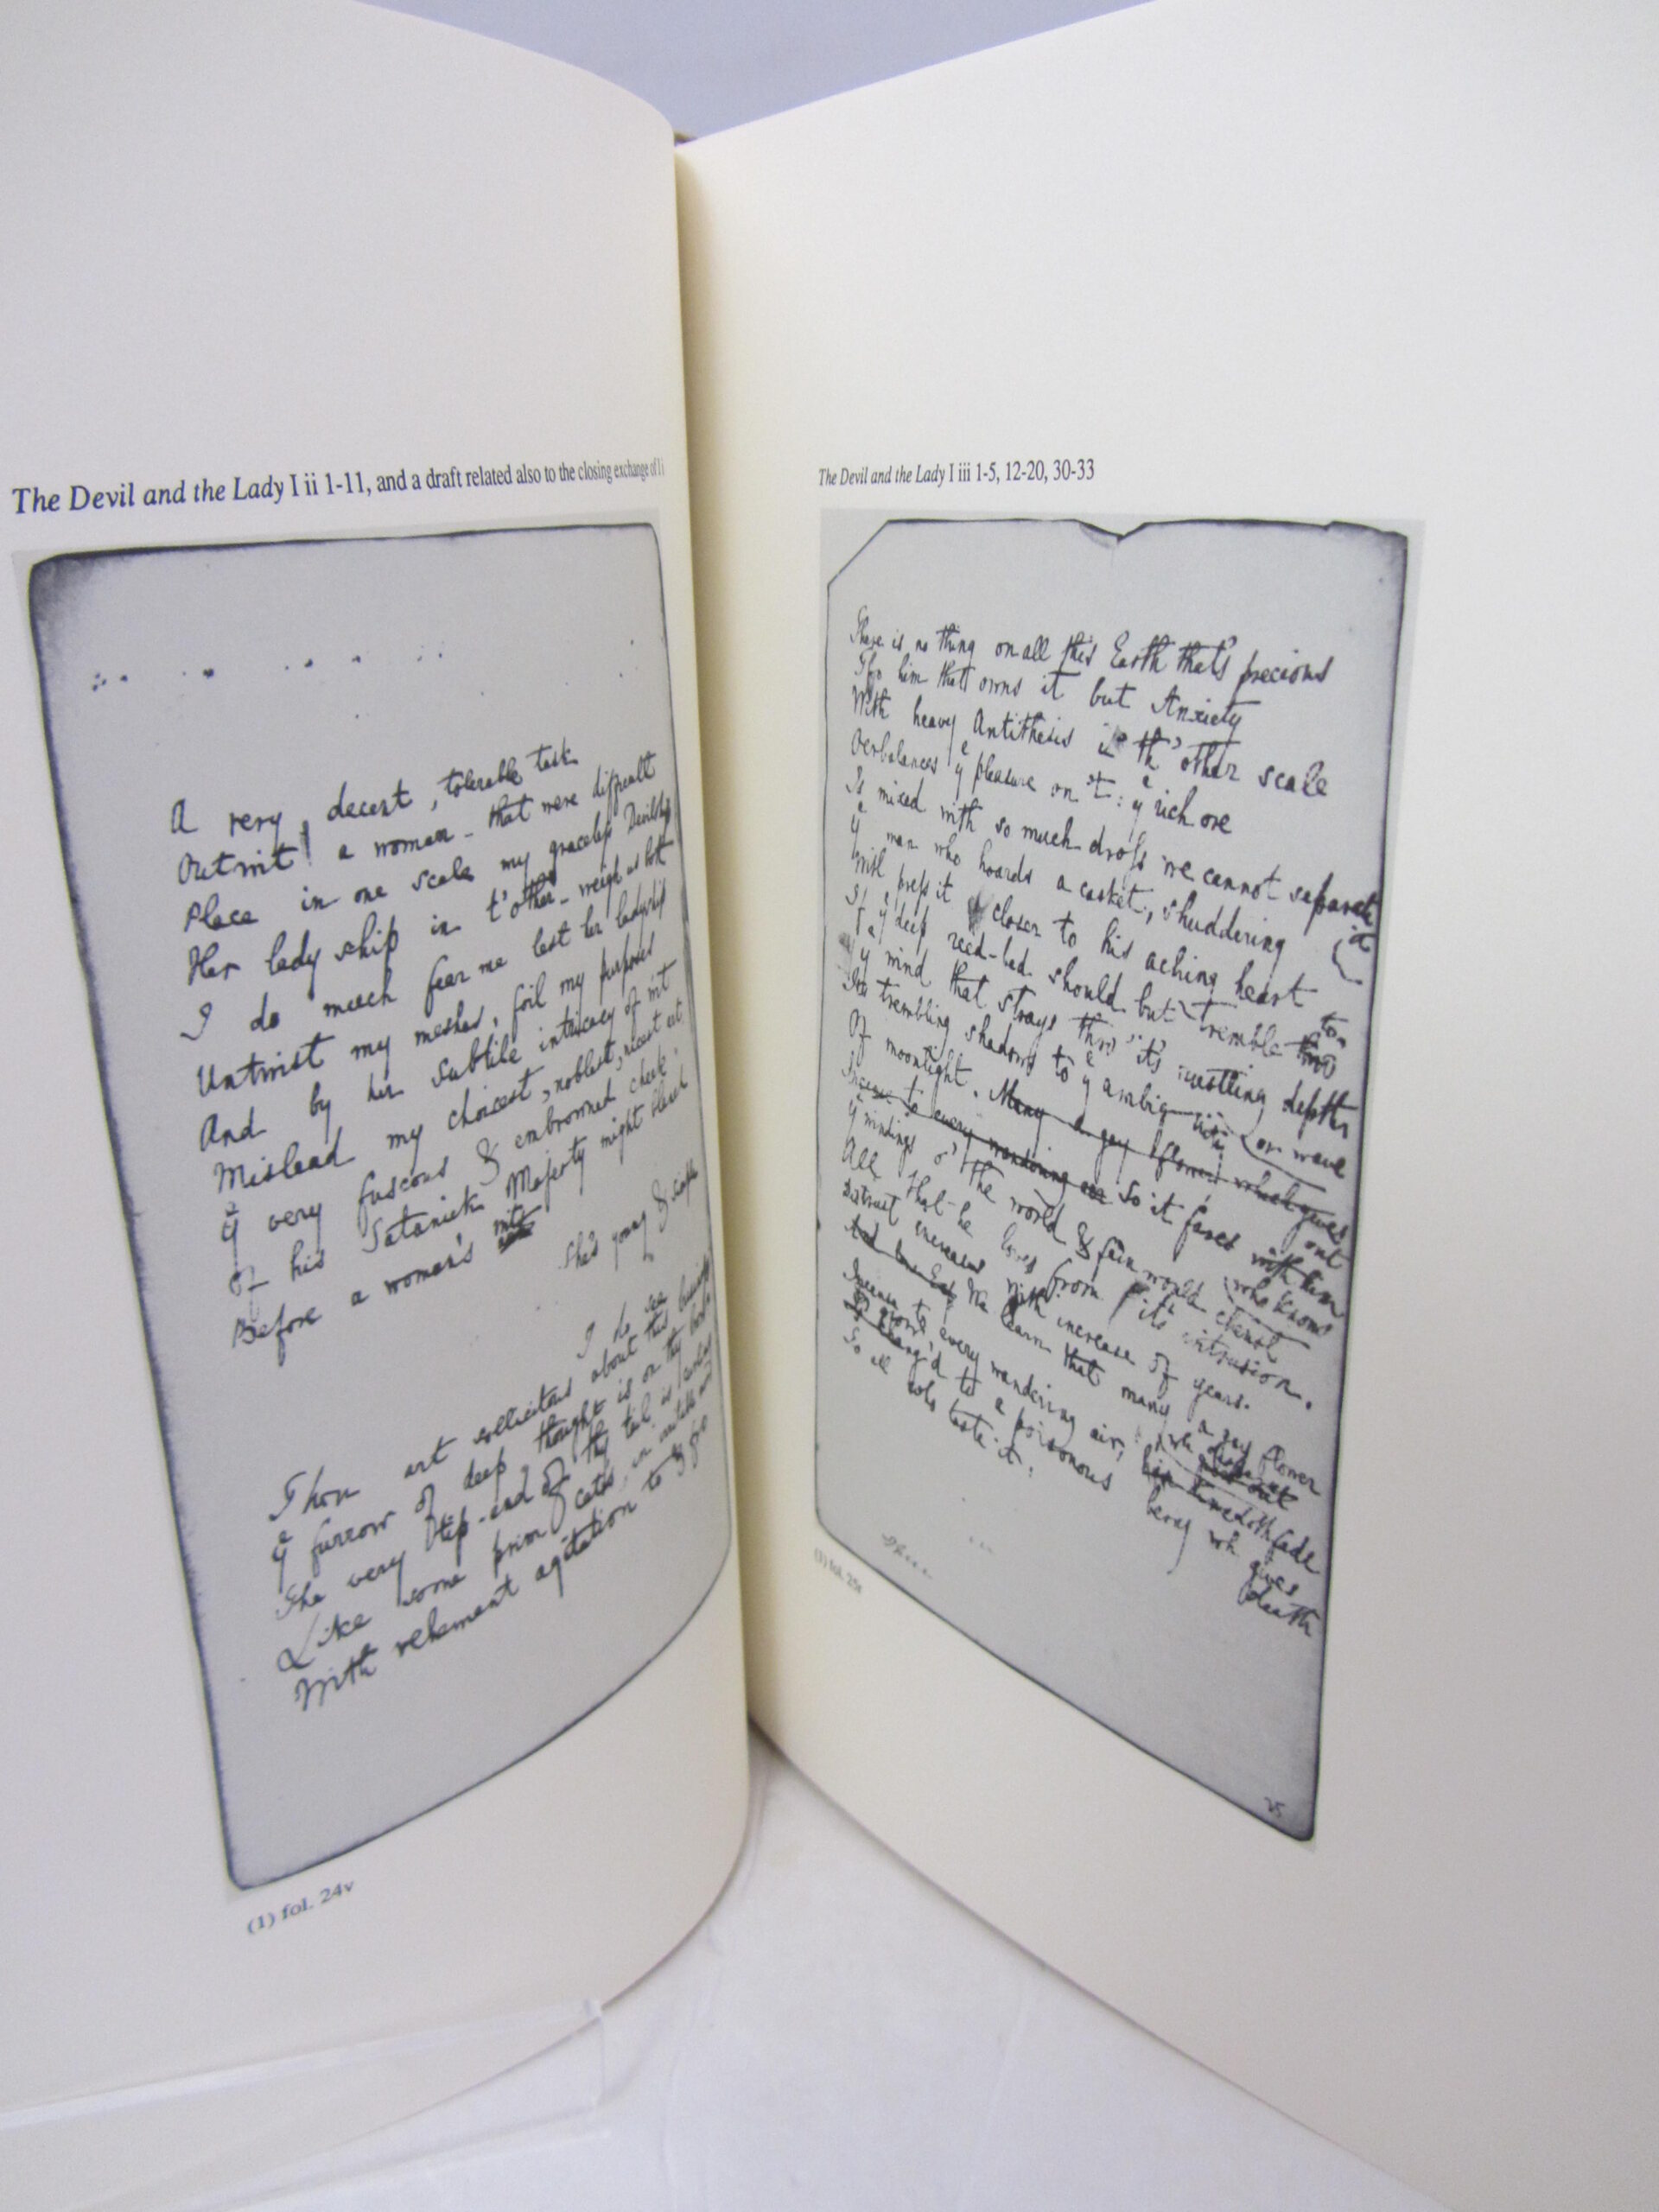 The Devil and the Lady I ii 1-11, and a draft related also to the closing exchange of I i
A very decent, tolerable task
Outwit a woman - that were difficult
Place in one scale my graceless Devilship
Her ladyship in t'other - weigh us both
I do much fear me lest her ladyship
Untwist my meshes, foil my purposes
And by her subtile intricacy of wit
Mislead my choicest, noblest, nicest
yͤ very fuscous & embrowned cheek
Of his Satanick Majesty might blush
Before a woman's wits
She's young & simple
I do see
Thou art sollicitous about this business
yͤ furrow of deep thought is on thy brow
The very tip-end of thy tail is
Like some prim cat's, in
With vehement agitation to & fro
(1) fol. 24v
The Devil and the Lady I iii 1-5, 12-20, 30-33
There is no thing on all this Earth that's precious
To him that owns it but Anxiety
With heavy Antithesis in th' other scale
Overbalances yͤ pleasure on 't: yͤ rich ore
Is mixed with so much dross we cannot separate it
yͤ man who hoards a casket, shuddering
Will press it closer to his aching heart
If yͤ deep reed-bed should but tremble to
yͤ wind that strays thro' it's rustling depths or wave
Its trembling shadows to yͤ ambiguity
Of moonlight. Many a gay flower which gives out
Incense to every wandering air So it fares with him who knows
yͤ windings o' the world & fain would
All that he loves from it's intrusion.
Distrust increases with increase of years.
We learn that many a gay flower
Incense to every wandering air,
Is chang'd to a poisonous berry wh gives death
So all who taste it.
(1) fol. 25r
25